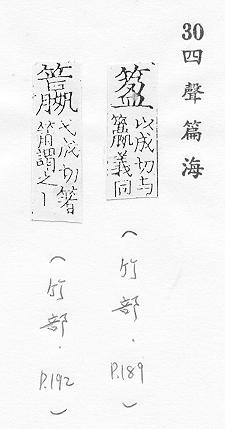 30四聲篇海
以成切与
義同
(竹部.P.189)
弋成切箸
筩謂之丨
(竹部.P.192)